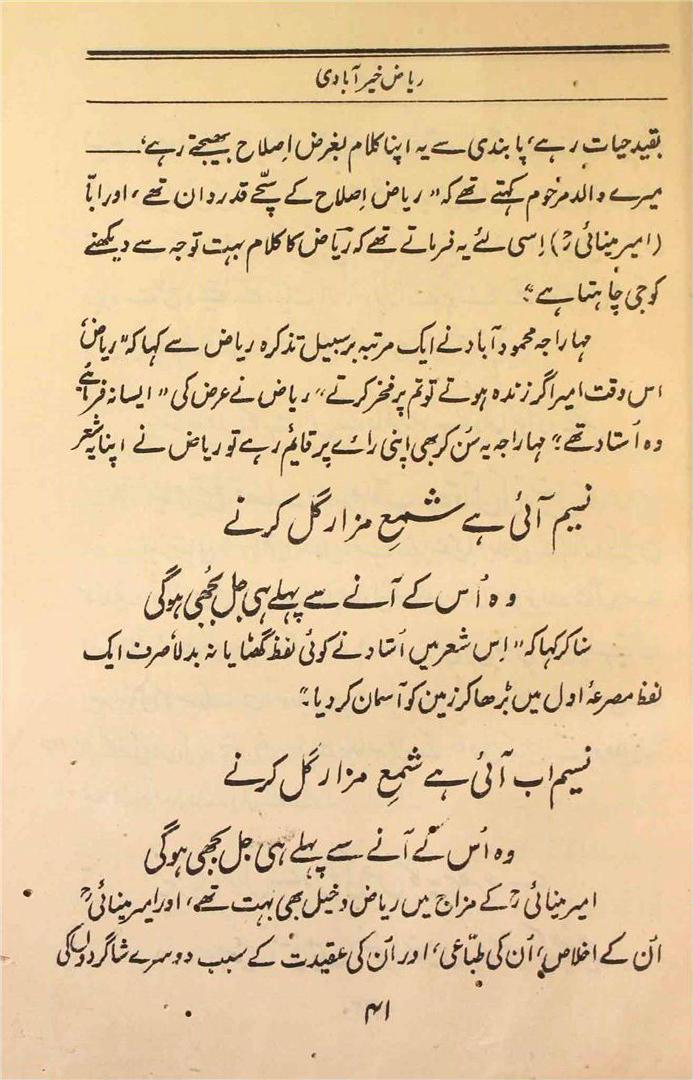 ریاض خیرآبادی
بقید حیات رہے، پابندی سے یہ اپنا کلام بغرض اِصلاح بھیجتے رہے،
میرے والد مرحوم کہتے تھے کہ ”ریاض اِصلاح کے سچّے قدردان تھے، اور ابّا
(امیر مینائی رح) اِسی لئے یہ فرماتے تھے کہ ریاض کا کلام بہت توجہ سے دیکھنے
کو جی چاہتا ہے“۔
مہاراجہ محمود آباد نے ایک مرتبہ برسبیل تذکرہ ریاض سے کہا کہ ”ریاض
اس وقت امیر اگر زندہ ہوتے تو تم پر فخر کرتے“ ریاض نے عرض کی ”ایسا نہ فرمائیے
وہ اُستاد تھے“۔ مہاراجہ یہ سُن کر بھی اپنی رائے پر قایٔم رہے تو ریاض نے اپنا یہ شعر
نسیم آئی ہے شمعِ مزار گل کرنے
وہ اُس کے آنے سے پہلے ہی جل بُجھی ہوگی
سنا کر کہا کہ ”اِس شعر میں اُستاد نے کوئی لفظ گھٹایا نہ بدلا صرف ایک
لفظ مصرعۂ اول میں بڑھا کر زمین کو آسمان کر دیا“۔
نسیم اب آئی ہے شمعِ مزار گل کرنے
وہ اُس کے آنے سے پہلے ہی جل بجھی ہوگی
امیر مینائی رح کے مزاج میں ریاض دخیل بھی بہت تھے، اور امیر مینائی رح
اُن کے اخلاص، اُن کی طبّاعی، اور اُن کی عقیدت کے سبب دوسرے شاگردوں کی
۴۱